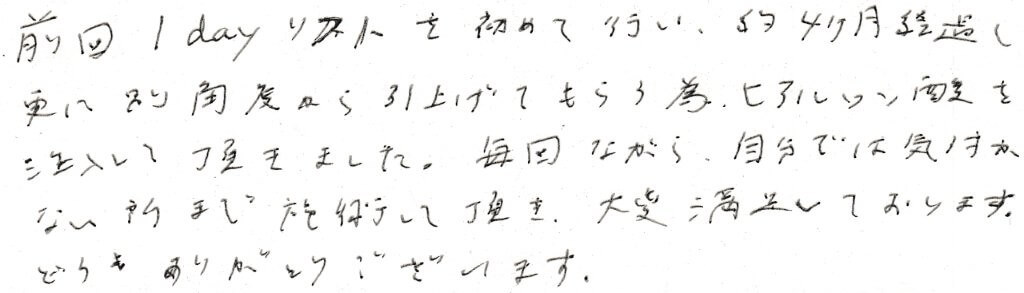 前回 1day リフト を 初めて 行い、約 4ヶ月経過し
更に 別角度から 引上げて もらう 為、ヒアルロン酸を
注入して 頂きました。毎回 ながら、自分では 気付か
ない 所 まで 施術して 頂き、大変 満足して おります。
どうも ありがとう ございます。